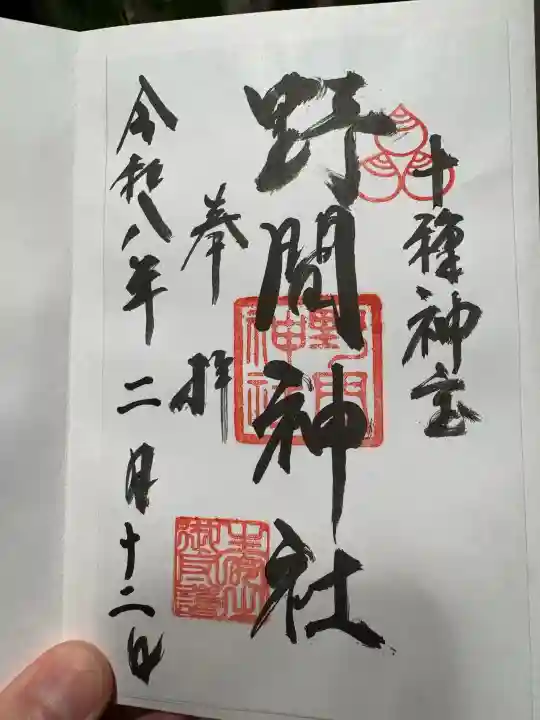 十種神宝
野間神社
奉拝
令和八年二月十二日
野間神社